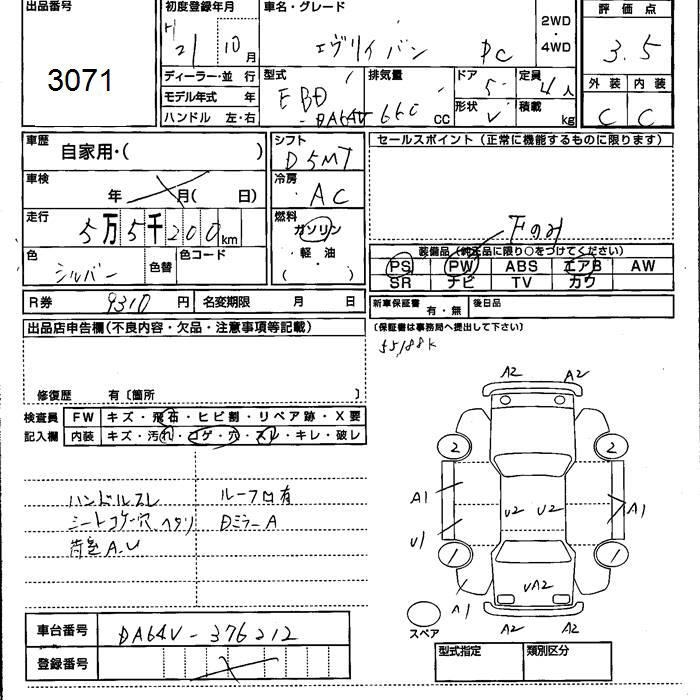 出品番号
3071
初度登録年月
H
21 10 月
車名・グレード
エヴリイバン PC
2WD
・
4WD
評価点
3.5
外装 内装
C C
ディーラー・並 行
モデル年式 年
ハンドル 左・右
型式
EBD
-DA64V
排気量
660 CC
ドア 5
形状 V
定員 4人
積載 kg
車歴
自家用・( )
車検
年 月( 日)
走行
5万5千200km
色
シルバー
色替
色コード
シフト
D5MT
冷房
AC
燃料
ガソリン
・
軽 油
( )
セールスポイント(正常に機能するものに限ります)
下のみ
装備品(純正品に限り○をつけてください)
PS PW ABS エアB AW
SR ナビ TV カワ
R券 9310 円 名変期限 月 日
新車保証書 有・無 後日品
(保証書は事務局へ提出して下さい)
55188K
出品店申告欄(不良内容・欠品・注意事項等記載)
修復歴 有〔箇所 〕
検査員
記入欄
FW キズ・飛石・ヒビ割・リペア跡・X要
内装 キズ・汚れ・コゲ・穴・スレ・キレ・破レ
ハンドルスレ
シートコゲ穴 ヘタリ
荷室A.U
ルーフ凹有
DミラーA
A2 A2
2 2
A1 A1
U2 U2
U1
1 1
UA2
A1
A2 A2
スペア
車台番号 DA64V-376212
登録番号
型式指定 類別区分